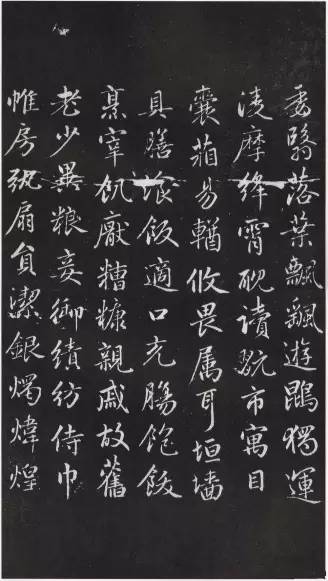 委翳落葉飄飄遊鵾獨運
淩摩絳霄耽讀翫市寓目
囊葙易輶攸畏属耳垣墻
具膳飡飯適口充腸飽飫
烹宰飢厭糟糠親戚故舊
老少異粮妾御績紡侍巾
帷房紈扇員潔銀燭煒煌